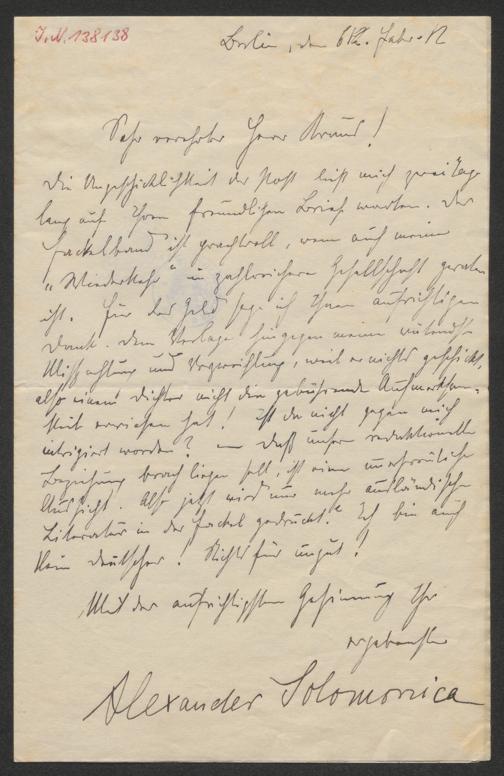 J.N. 138138
Berlin, den 6
Sehr verehrter Herr Kraus!
Die Ungeschicklichkeit der Post ließ mich zwei Tage
lang auf Ihren freundlichen Brief warten. Der
Fackelband ist prachtvoll, wenn auch meine
"Wiederkehr" in zahlreichere Gesellschaft geraten
ist. Für das Geld sage ich Ihnen aufrichtigen
Dank. Dem Verlage hingegen meine
Mißachtung und Verzweiflung, weil er nichts geschickt,
also einem Dichter nicht die gebührende Aufmerksam-
keit erwiesen hat! Ist da nicht gegen mich
intrigiert worden? — Daß unsere redaktionelle
Beziehung brach liegen soll, ist eine unerfreuliche
Aussicht. Also jetzt wird nur mehr ausländische
Literatur in der Fackel gedruckt? Ich bin auch
kein Deutscher! Nichts für ungut!
Mit der aufrichtigsten Gesinnung Ihr
ergebenster
Alexander Solomonica